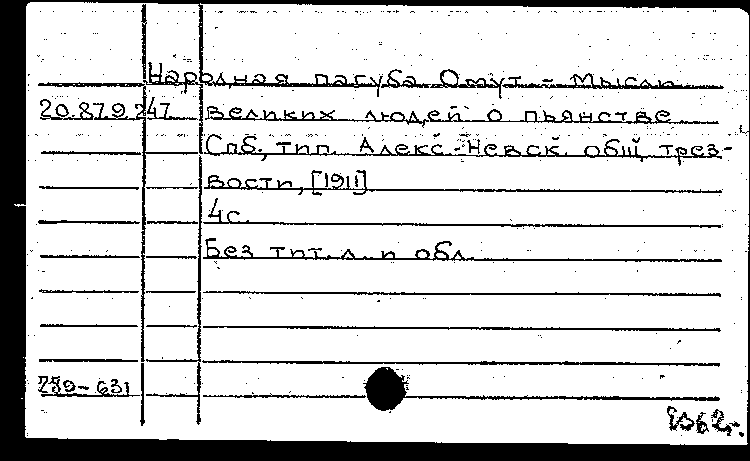 Народная пагуба Омут - Мысли
20.87.9.247 великих людей о пьянстве
Спб., тип. Алекс.-Невск. общ. трез-
вости, [1911]
4с.
Без тит. л. и обл.
289-631